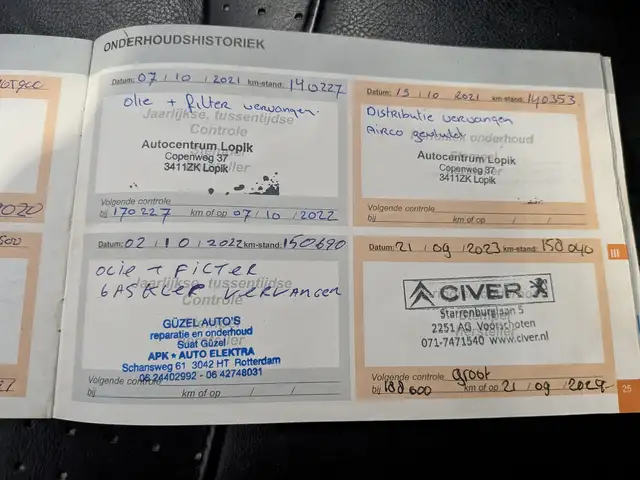 ONDERHOUDSHISTORIEK
Datum: 07 / 10 / 2021 km-stand: 140227
olie + filter vervangen.
Jaarlijkse, tussentijdse
Controle
Autocentrum Lopik
Copenweg 37
3411ZK Lopik
Volgende controle
bij 170227 km of op 07 / 10 / 2022
Datum: 15 / 10 / 2021 km-stand: 140353
Distributie vervangen
Airco
onderhoud
Autocentrum Lopik
Copenweg 37
3411ZK Lopik
Volgende controle
bij km of op / /
Datum: 02 / 10 / 2022 km-stand: 150690
OLIE + FILTER
VERVANGEN
Jaarlijkse, tussentijdse
Controle
GÜZEL AUTO'S
reparatie en onderhoud
Suat Güzel
APK ★ AUTO ELEKTRA
Schansweg 61 3042 HT Rotterdam
06 24402992 - 06 42748031
Volgende controle
bij km of op / /
Datum: 21 / 09 / 2023 km-stand: 158040
CIVER
Starrenburglaan 5
2251 AG Voorschoten
071-7471540 www.civer.nl
Volgende controle groot
bij 188000 km of op 21 / 09 / 2024
III
25